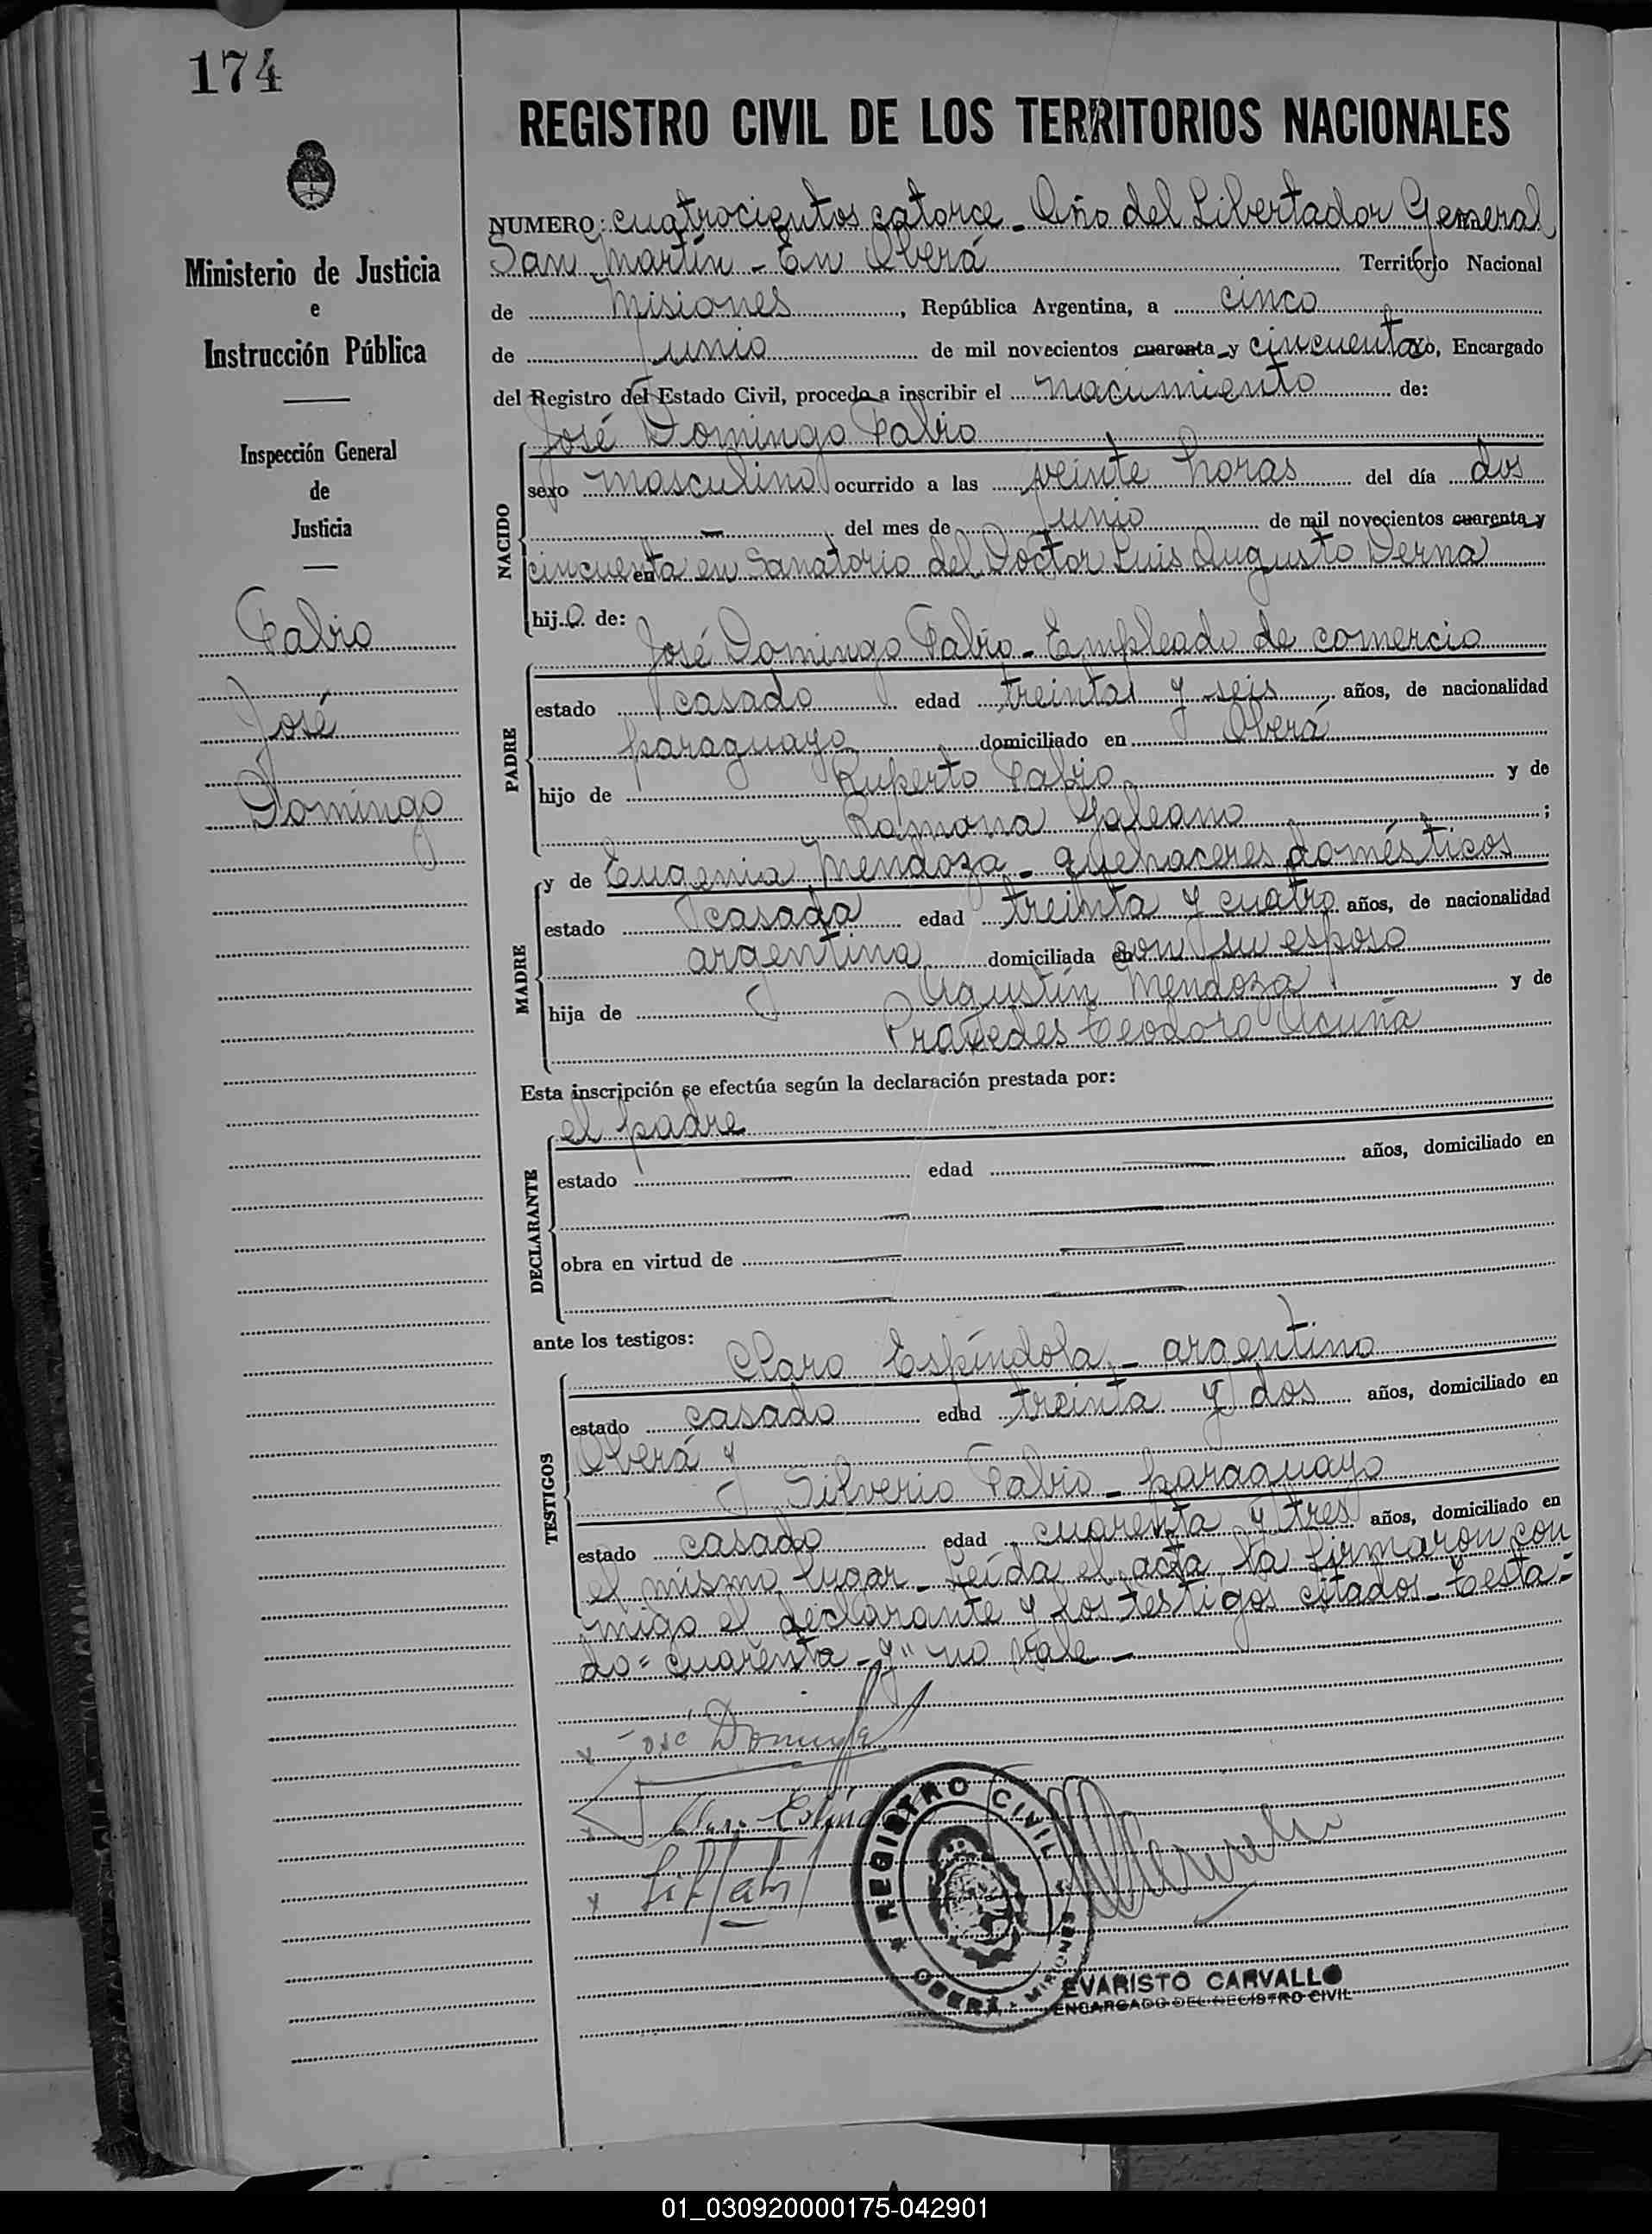 174
REGISTRO CIVIL DE LOS TERRITORIOS NACIONALES
Ministerio de Justicia
e
Instrucción Pública
Inspección General
de
Justicia
Fabio
José
Domingo
NUMERO: cuatrocientos catorce - Año del Libertador General
San Martín - En Oberá Territorio Nacional
de Misiones, República Argentina, a cinco
de Junio de mil novecientos cuarenta y cincuenta yo, Encargado
del Registro del Estado Civil, procedo a inscribir el nacimiento de:
José Domingo Fabio
NACIDO
sexo masculino ocurrido a las veinte horas del día dos
del mes de Junio de mil novecientos cuarenta y
cincuenta en Sanatorio del Doctor Luis Augusto Derna
hijo de:
José Domingo Fabio - Empleado de comercio
PADRE
estado casado edad treinta y seis años, de nacionalidad
paraguayo domiciliado en Oberá
hijo de Ruperto Fabio y de
Ramona Galeano;
y de Eugenia Mendoza - quehaceres domésticos
MADRE
estado casada edad treinta y cuatro años, de nacionalidad
argentina domiciliada con su esposo
hija de Agustín Mendoza y de
Teodora Acuña
Esta inscripción se efectúa según la declaración prestada por:
el padre
DECLARANTE
estado — edad — años, domiciliado en
obra en virtud de
ante los testigos:
Claro Espíndola - argentino
TESTIGOS
estado casado edad treinta y dos años, domiciliado en
Oberá y
Silverio Fabio - paraguayo
estado casado edad cuarenta y tres años, domiciliado en
el mismo lugar - Leída el acta, la firmaron con
migo el declarante y los testigos citados - Testa=
do = cuarenta - y" no vale -
x José Domingo
x Claro Espínd
x Sil Fabi
REGISTRO CIVIL
OBERÁ - MISIONES
EVARISTO CARVALLO
ENCARGADO DEL REGISTRO CIVIL
01_030920000175-042901